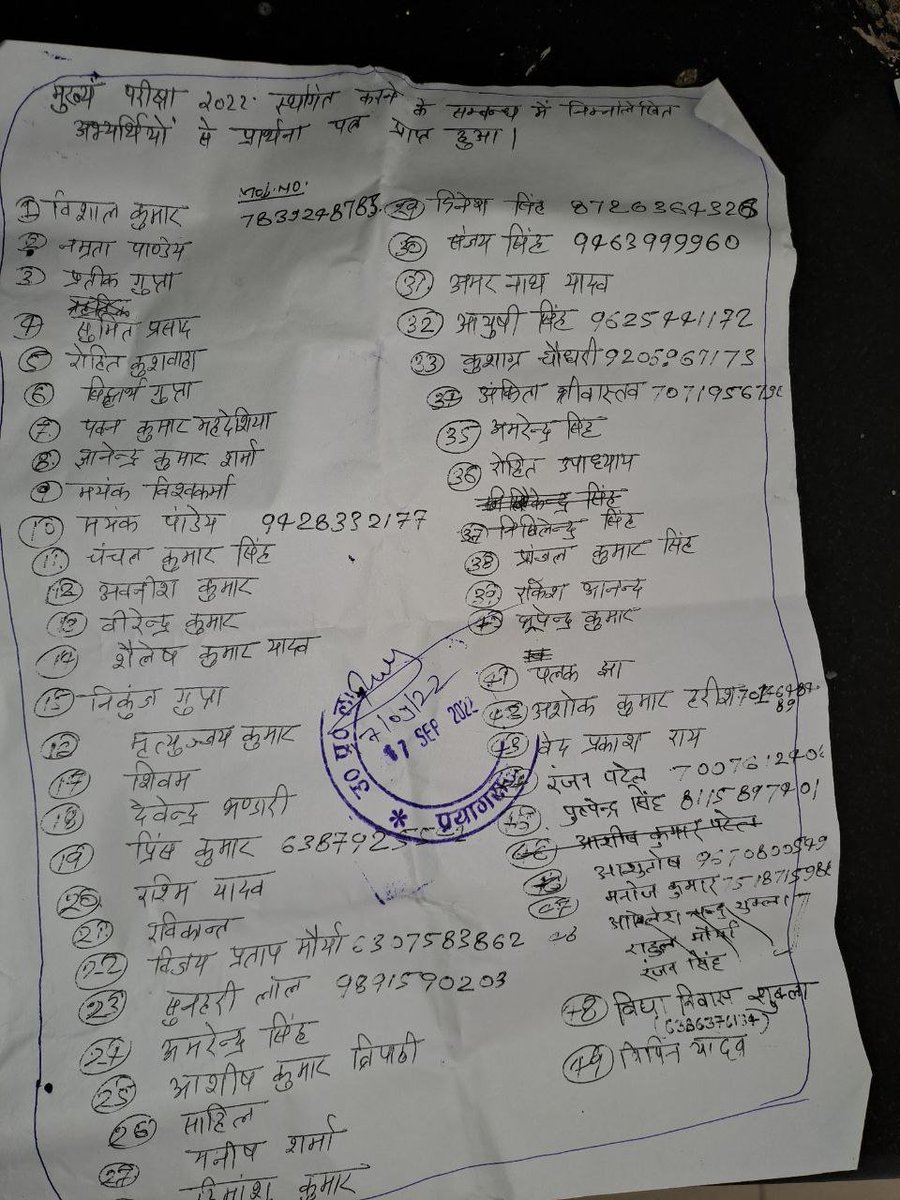 मुख्य परीक्षा 2022 स्थगित करने के सम्बन्ध में निम्नलिखित
अभ्यर्थियों से प्रार्थना पत्र प्राप्त हुआ।
Mob.NO:
1 विशाल कुमार 7839248783
2 नम्रता पाण्डेय
3 प्रतीक गुप्ता
4 सुमित प्रसाद
5 रोहित कुशवाहा
6 सिद्धार्थ गुप्ता
7 पवन कुमार मद्देशिया
8 ज्ञानेन्द्र कुमार शर्मा
9 मयंक विश्वकर्मा
10 मयंक पांडेय 9428332177
11 चंचल कुमार सिंह
12 अवनीश कुमार
13 वीरेन्द्र कुमार
14 शैलेष कुमार यादव
15 निकुंज गुप्ता
मृत्युञ्जय कुमार
17 शिवम
18 देवेन्द्र भण्डारी
19 प्रिंस कुमार
20 रश्मि यादव
21 रविकान्त
22 विजय प्रताप मौर्या 6307583862
23 सुनहरी लाल 9891590203
24 अमरेन्द्र सिंह
25 आशीष कुमार त्रिपाठी
26 साहिल
27 मनीष शर्मा
हिमांशु कुमार
29 दिनेश सिंह 8726364326
30 संजय सिंह 9463999960
31 अमर नाथ यादव
32 आयुषी सिंह 9625441172
33 कुशाग्र चौधरी 9205967173
34 अंकिता श्रीवास्तव
35 अमरेन्द्र सिंह
36 रोहित उपाध्याय
37 निखिलेन्द्र सिंह
38 प्रांजल कुमार सिंह
39 राकेश आनन्द
40 भूपेन्द्र कुमार
41 पलक झा
अशोक कुमार हरीश
43 वेद प्रकाश राय
रंजन पटेल
पुष्पेन्द्र सिंह 8115897401
आशीष कुमार पटेल
आशुतोष 9670800549
47 मनोज कुमार
शुक्ला
राहुल मौर्या
रंजन सिंह
48 विद्या निवास शुक्ला
(6386376134)
49 विपिन यादव
7/09/22
SEP 2022
उ0 प्र0 लो
* प्रयागराज